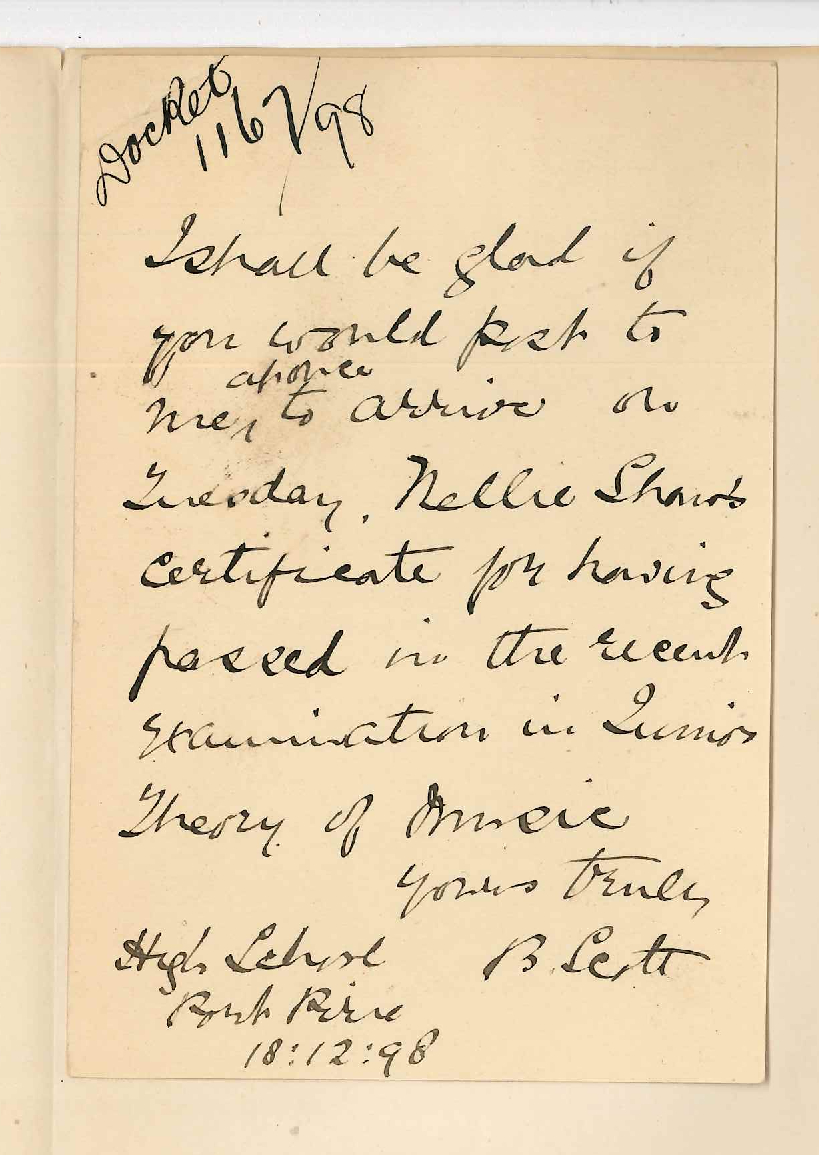 Docket
1167/98
I shall be glad if
you would post to
at once
me, to arrive on
Tuesday, Nellie Shaw's
certificate for having
passed in the recent
examination in Junior
Theory of Music
Yours truly
High School B Scott
Port Pirie
18:12:98